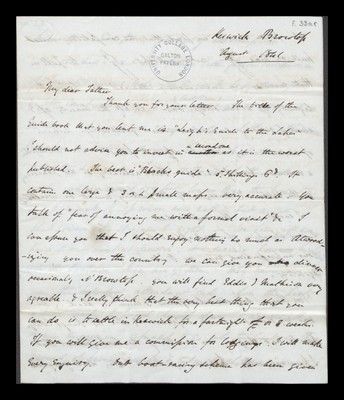 Keswick Browtop
August
UNIVERSITY COLLEGE LONDON
GALTON PAPERS
My dear Father
Thank you for your letter. The title of the
Guide book that you lent me is "Leigh's Guide to the Lakes"
I should not advise you to invest in a second one as it is the worst
published. The best is "Black's guide" 5 Shillings 6d. It
contains one large & 3 or 4 small maps, very accurate. You
talk of "fear of annoying me with a formal visit" &c I
can assure you that I should enjoy nothing so much as
you over the country we can give you dinner
occasionally at Browtop you will find Eddis & Mathison very
agreeable & I really think that the very best thing that you
can do is to settle in Keswick for a fortnight or 3 weeks.
If you will give me a commission for Lodgings I will make
every enquiry. Our boat-racing scheme has been given